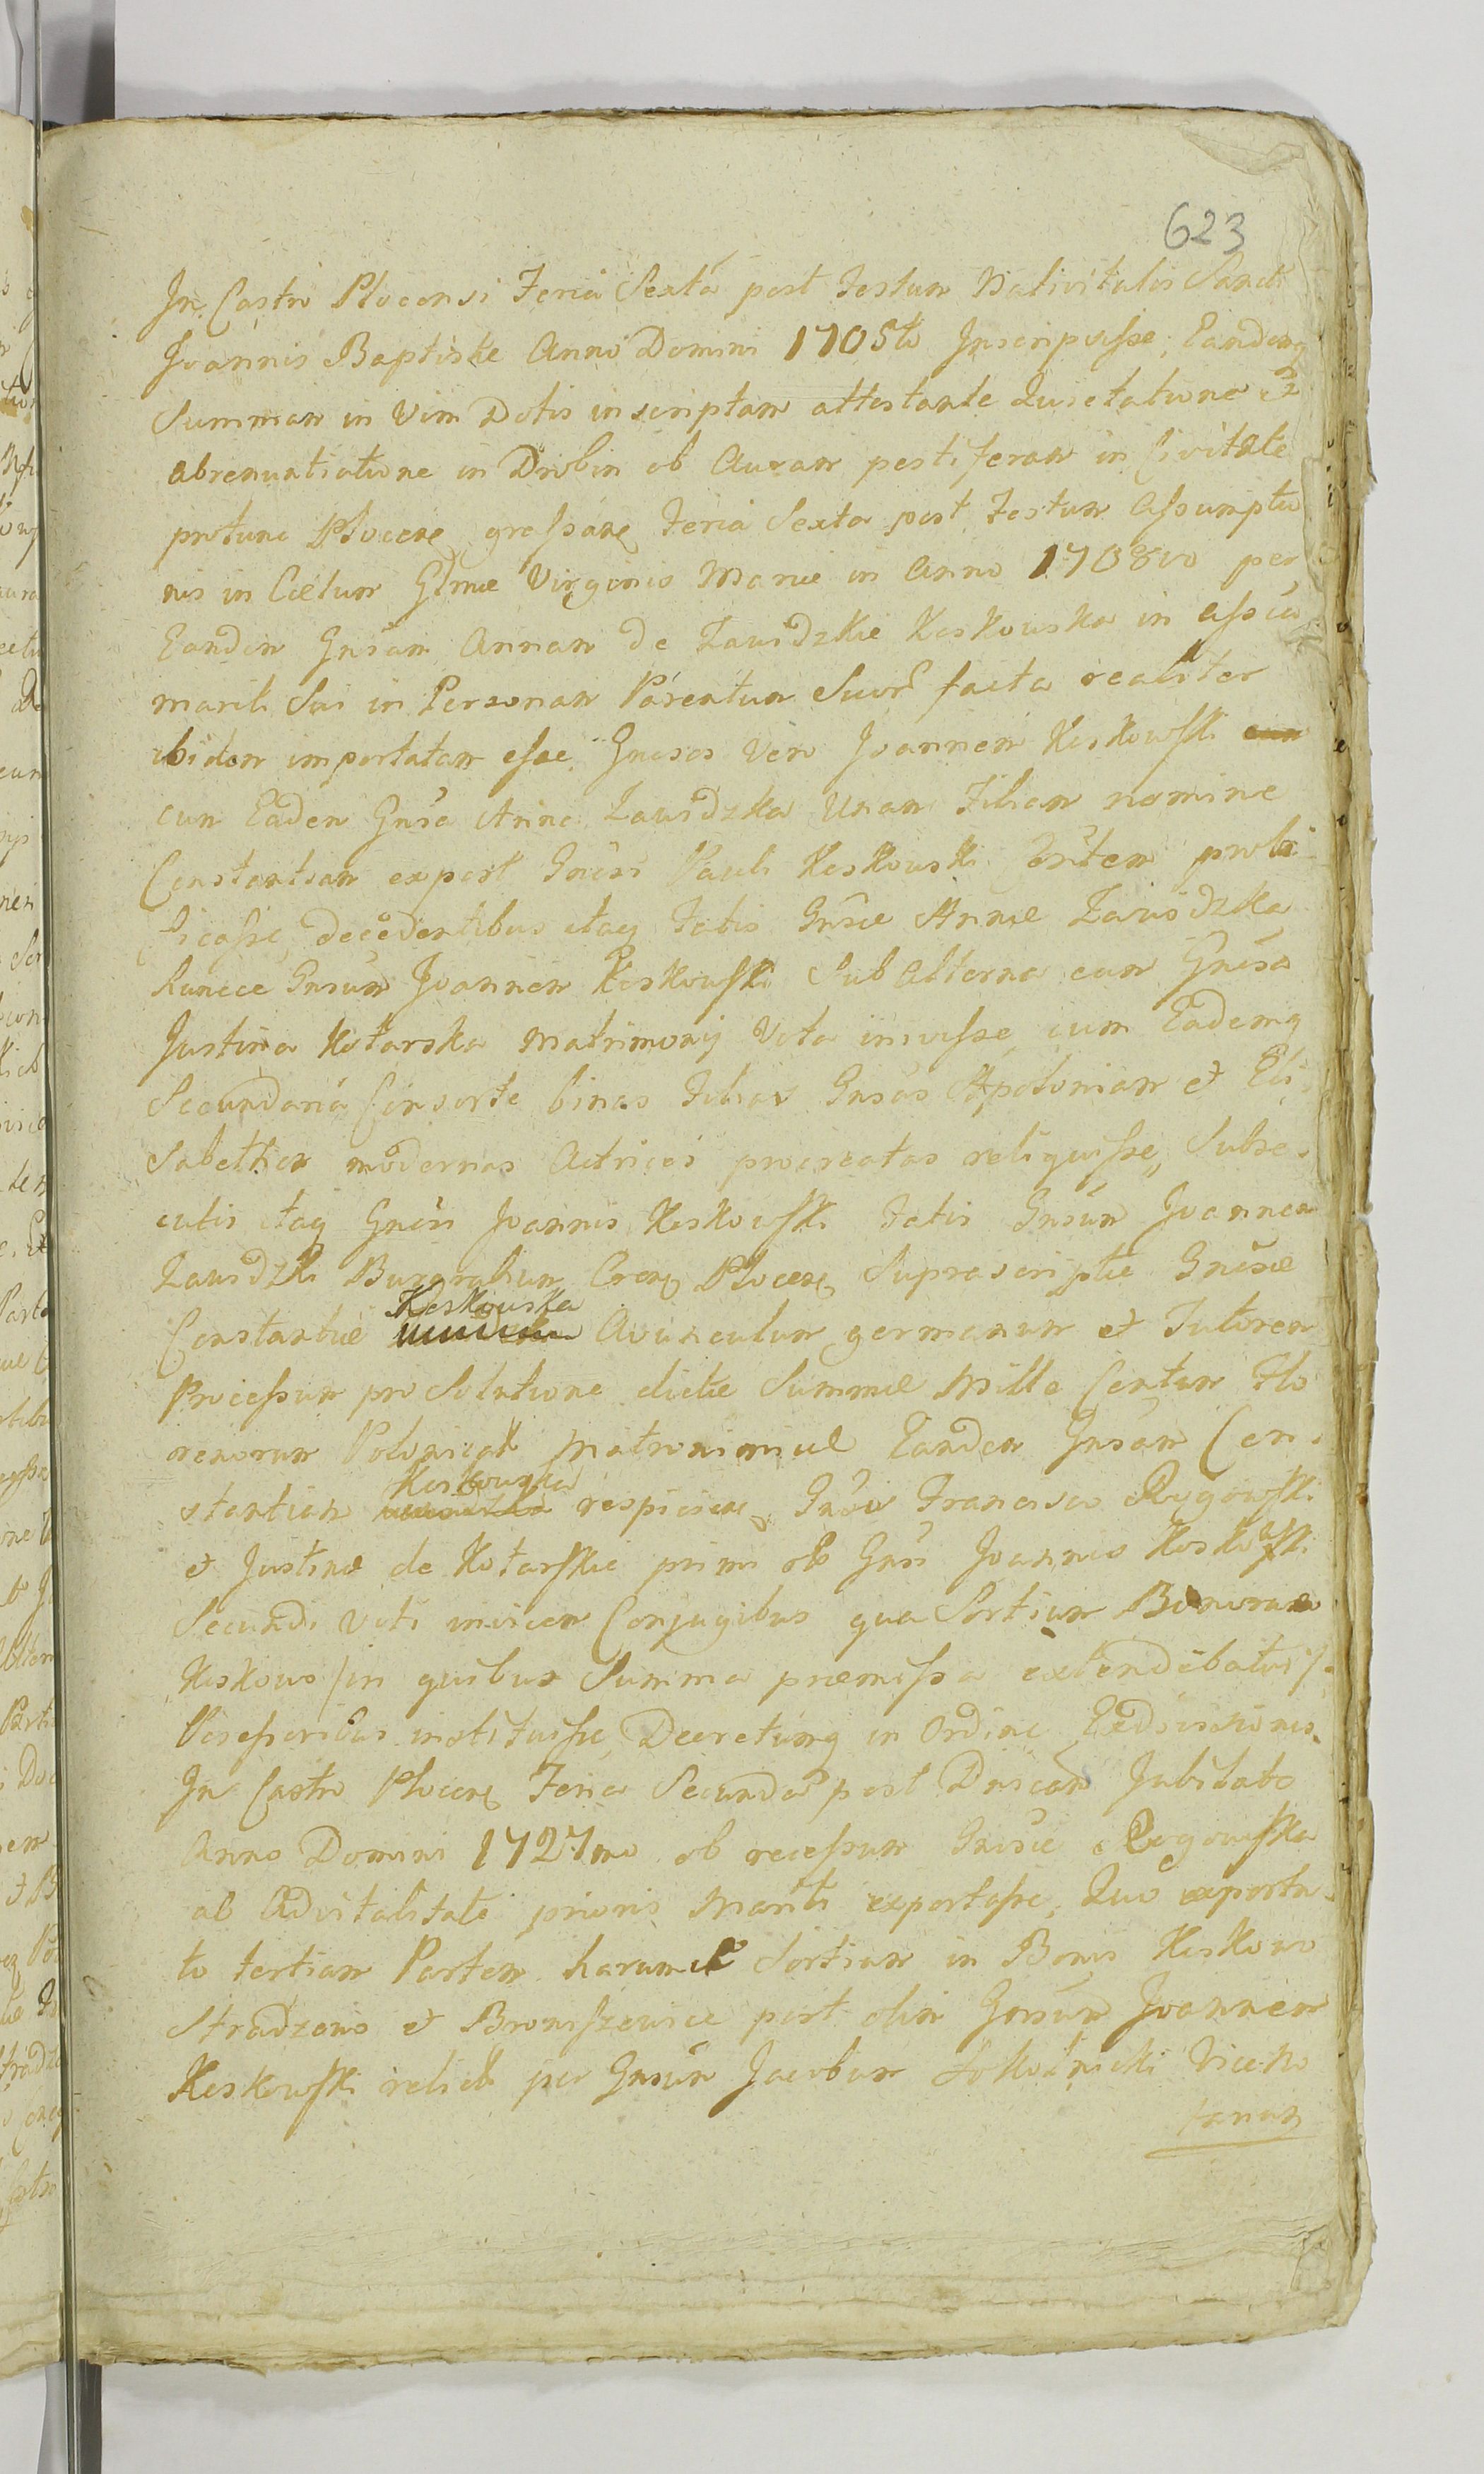 623
In Castro Plocensi Feria Sexta post Festum Nativitatis Sancti
Joannis Baptistae Anno Domini 1705to Inscripsisse, Eandemq
Summam in Vim Dotis inscriptam attestante Quietatione et
abrenuntiatione in Drobin ob Auram pestiferam in Civitate
protunc Plocen grassan Feria Sexta post Festum Assumptio
nis in Caelum Glmae Virginis Mariae in Anno 1708vo per
Eandem Gnsam Annam de Zawidzkie Keskowska in assia
mariti Sui in Personam Parentum Suor facta realiter
ibidem importatam esse, Gnosos Vero Joannem Keskowski
cum Eadem Gnsa Anna Zawidzka Unam Filiam nomine
Constantiam expost Gnosi Pauli Keskowski proli
ficasse, decedentibus itaq Fatis Gnsae Annae Zawidzka
hunece Gnsum Joannem Keskowski Sub alterna cum Gnosa
Justina Kotarska Matrimonij Vota iniisse, cum Eademq
Secundaria Consorte binas Filias Gnsas Apoloniam et Eli
Sabetham modernas Actrices procreatas reliquisse, Subse
cutis itaq Gnosi Joannis Keskowski Fatis Gnsum Joannem
Zawidzki Burgrabium Cren Plocen, Suprascriptae Gnosae
Constantiae Keskowska Avunculum germanum et Tutorem
Processum pro Solutione dictae Summae Mille Centum Flo
renorum Polonical Matrimoniae Eandem Gnsam Con
stantiam Keskowska respicien, Gnsis Francisco Rygowski
et Justina de Kotarskie primi olo Gnsi Joannis Keskowski
Secundi Voti invicem Conjugibus qua Sortium Bonorum
Keskowo /in quibus Summa praemissa extendebatur/
Possessoribus instituisse, Decretumq in Ordine Exdivisionis
In Castro Plocen Feria Secunda post Dnicam Jubilate
Anno Domini 1727mo ob recessum Gnosae Rygowska
ab Advitalitate prioris Mariti exportasse, Quo exporta
to tertiam Partem harum Sortium in Bonis Keskowo
Stradzewo et Broniszewice post olim Gnsum Joannem
Keskowski relict per Gnsum Jacobum Sokolnicki Viceno
tarium